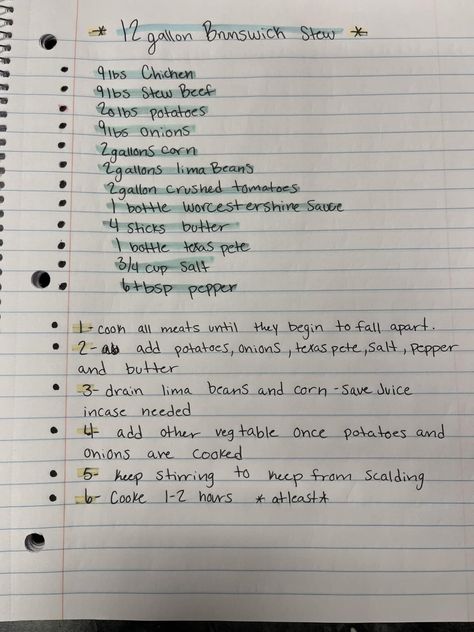 * 12 gallon Brunswich Stew *
9lbs Chichen
9lbs Stew Beef
20lbs potatoes
9lbs onions
2gallons corn
2gallons lima Beans
2gallon crushed tomatoes
1 bottle worcestershire Sauce
4 sticks butter
1 bottle texas pete
3/4 cup Salt
6tbsp pepper
1- cook all meats until they begin to fall apart.
2- add potatoes, onions, texas pete, salt, pepper
and butter
3- drain lima beans and corn - save juice
incase needed
4- add other vegtable once potatoes and
onions are cooked
5- keep stirring to keep from scalding
6- Cooke 1-2 hours * atleast *